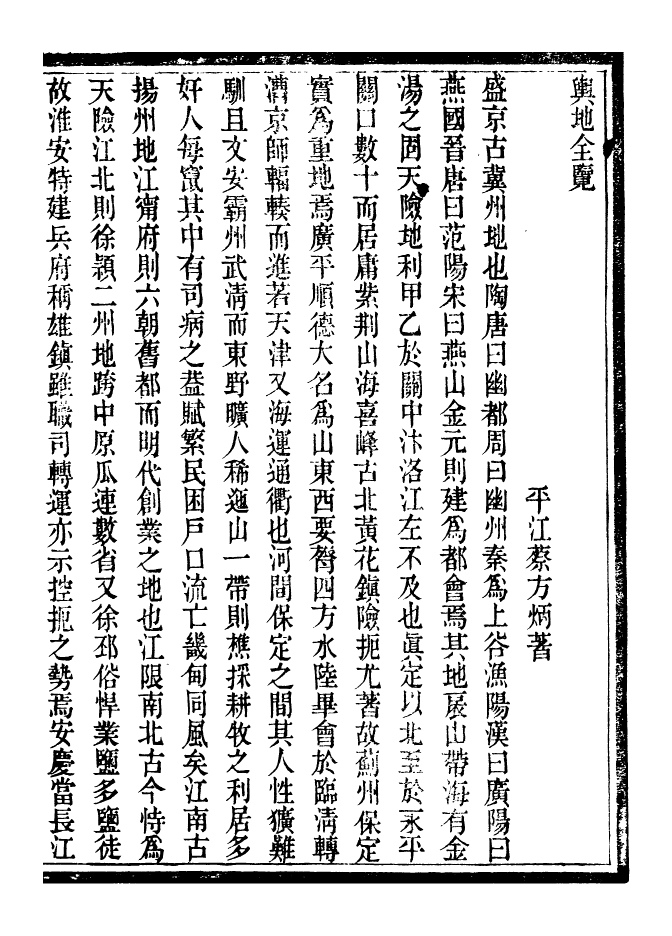 輿地全覽
平江蔡方炳著
盛京古冀州地也陶唐曰幽都周曰幽州秦爲上谷漁陽漢曰廣陽曰
燕國晉唐曰范陽宋曰燕山金元則建爲都會焉其地扆山帶海有金
湯之固天險地利甲乙於關中汴洛江左不及也眞定以北至於永平
關口數十而居庸紫荆山海喜峰古北黃花鎭險扼尤著故薊州保定
實爲重地焉廣平順德大名爲山東西要膂四方水陸畢會於臨淸轉
漕京師輻輳而進若天津又海運通衢也河間保定之間其人性獷難
馴且文安霸州武淸而東野曠人稀迤山一帶則樵採耕牧之利居多
奸人每竄其中有司病之葢賦繁民困戶口流亡畿甸同風矣江南古
揚州地江甯府則六朝舊都而明代創業之地也江限南北古今恃爲
天險江北則徐潁二州地跨中原瓜連數省又徐邳俗悍業鹽多鹽徒
故淮安特建兵府稱雄鎭雖職司轉運亦示控扼之勢焉安慶當長江